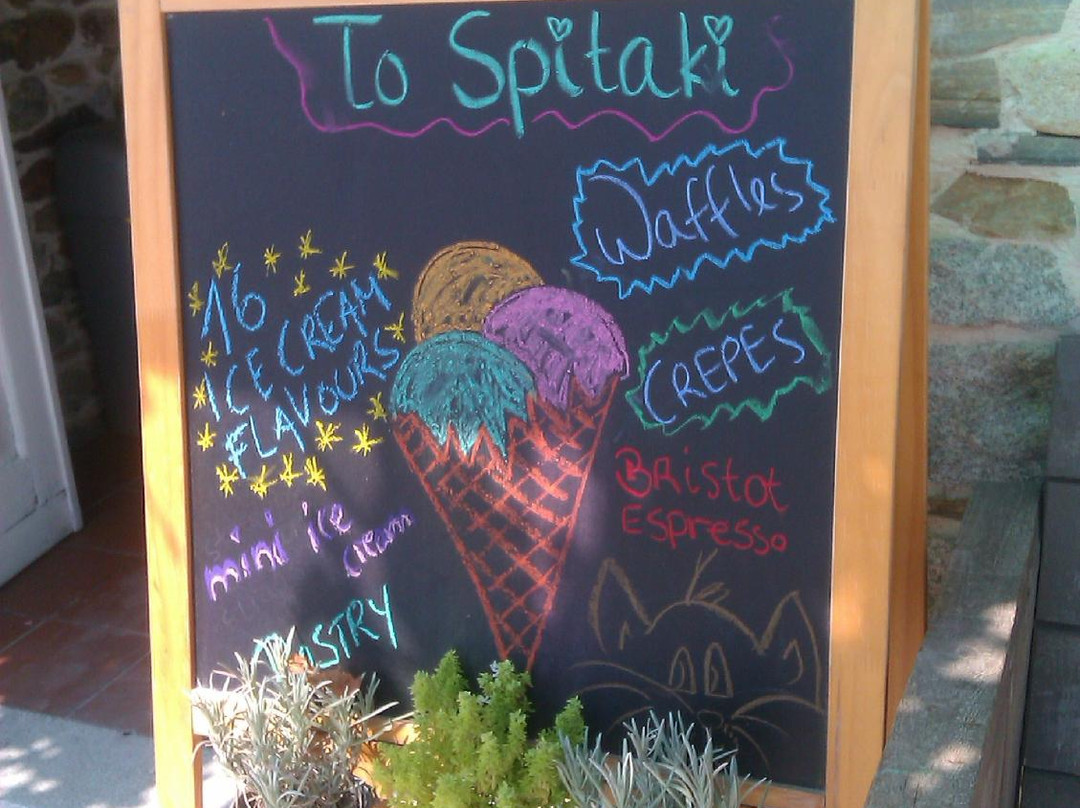 To Spitaki
Waffles
16
ICE CREAM
FLAVOURS
CREPES
BRistot
Espresso
mini ice
cream
PASTRY